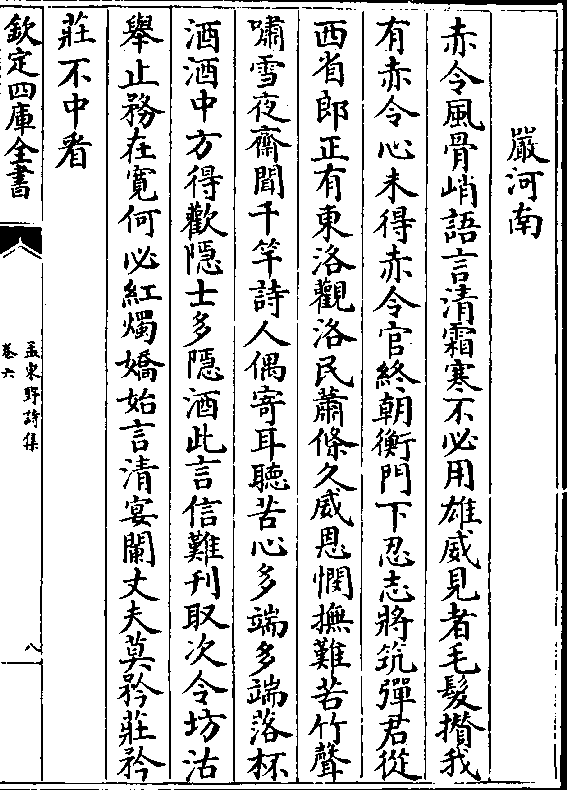 嚴河南
赤令風骨峭語言清霜寒不必用雄威見者毛髮攢我
有赤令心未得赤令官終朝衡門下忍志將筑彈君從
西省郎正有東洛觀洛民蕭條久威恩憫撫難苦竹聲
嘯雪夜齋聞千竿詩人偶寄耳聽苦心多端多端落杯
酒酒中方得歡隱士多隱酒此言信難刊取次令坊沽
舉止務在寛何必紅燭嬌始言清宴闌丈夫莫矜莊矜
莊不中看
欽定四庫全書
孟東野詩集
卷六
八